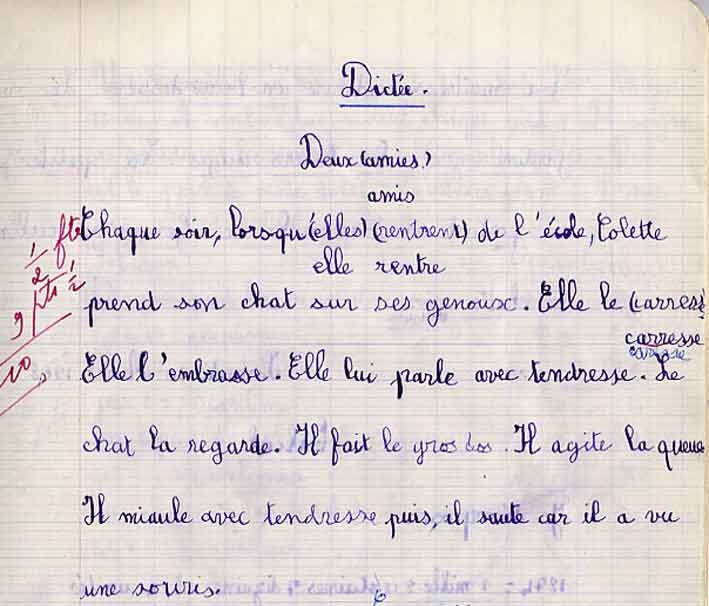 Dictée.
Deux (amies)
amis
Chaque soir, lorsqu'(elles) (rentrent) de l'école, Colette
elle rentre
prend son chat sur ses genoux. Elle le (carress
carresse
caresse
Elle l'embrasse. Elle lui parle avec tendresse. Le
chat la regarde. Il fait le gros dos. Il agite la queue
Il miaule avec tendresse puis, il saute car il a vu
une souris.
1/2 fte
9 pts 1/2
10